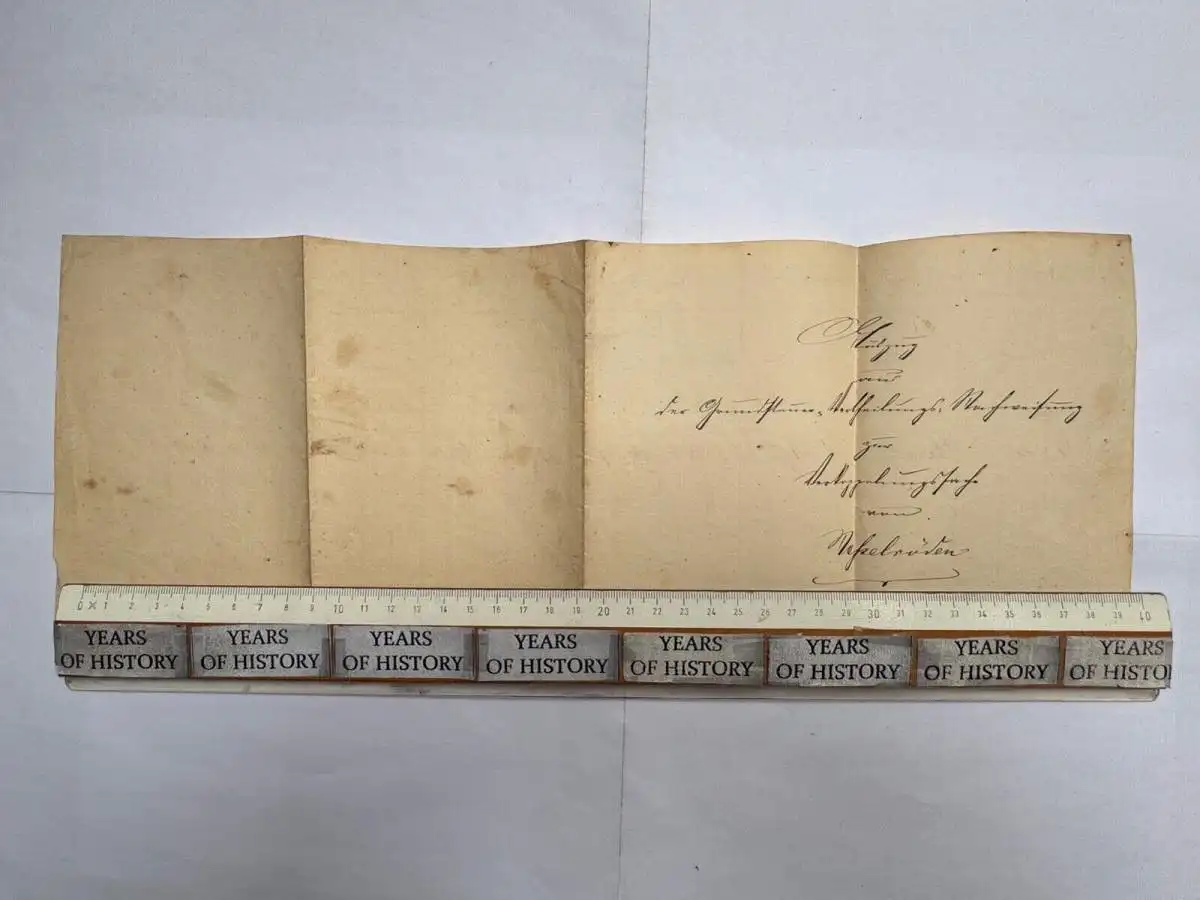 Auszug
aus
der Grundsteuer-Vertheilungs-Nachweisung
zur
Verkoppelungssache
von
Nesselröden
0 1 2 3 4 5 6 7 8 9 10 11 12 13 14 15 16 17 18 19 20 21 22 23 24 25 26 27 28 29 30 31 32 33 34 35 36 37 38 39 40
YEARS OF HISTORY YEARS OF HISTORY YEARS OF HISTORY YEARS OF HISTORY YEARS OF HISTORY YEARS OF HISTORY YEARS OF HISTORY YEARS OF HISTO